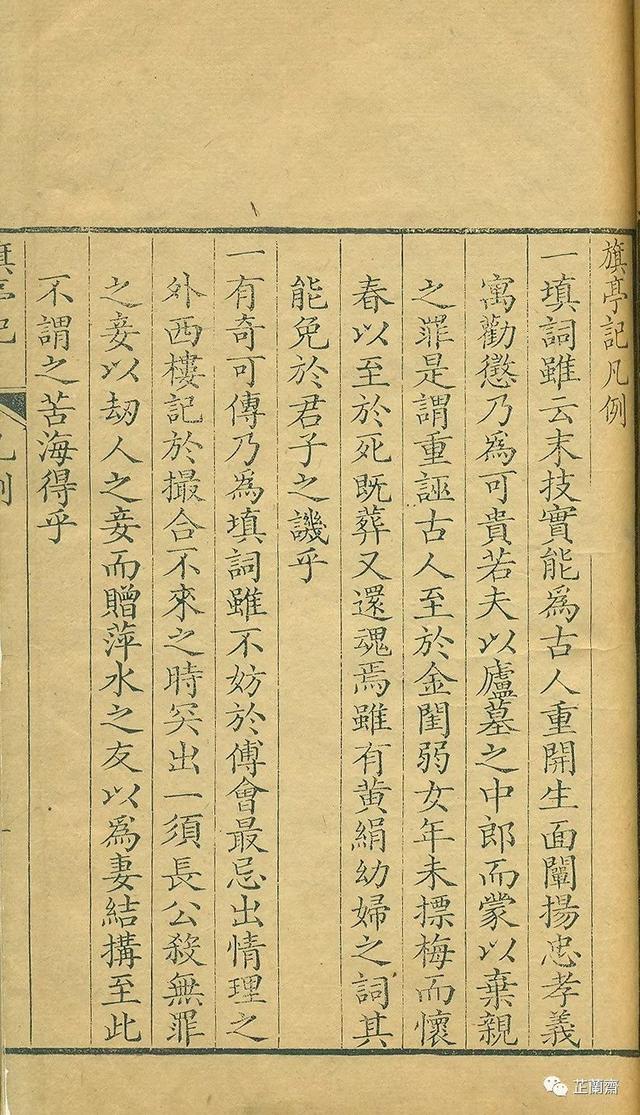 旗亭記凡例
一填詞雖云末技實能爲古人重開生面闡揚忠孝義
寓勸懲乃爲可貴若夫以廬墓之中郎而蒙以棄親
之罪是謂重誣古人至於金閨弱女年未摽梅而懷
春以至於死既葬又還魂焉雖有黄絹幼婦之詞其
能免於君子之譏乎
一有奇可傳乃爲填詞雖不妨於傅會最忌出情理之
外西樓記於撮合不來之時突出一須長公殺無罪
之妾以劫人之妾而贈萍水之友以爲妻結搆至此
不謂之苦海得乎
旗亭記
凡例
一
芷蘭齋